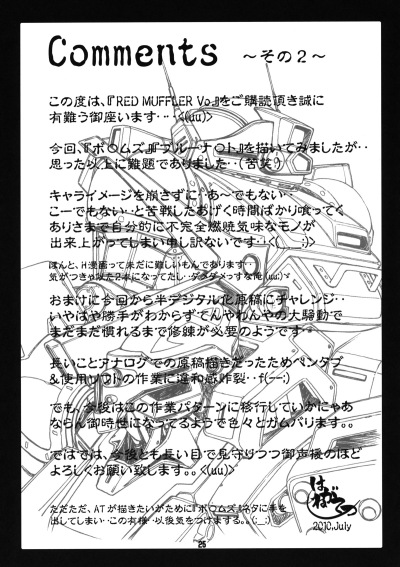 Comments ～その２～
この度は、『RED MUFFLER Vo.』をご購読頂き誠に
有難う御座います‥‥<(uu)>
今回、『ボ○ムズ』『ブルーナ○ト』を描いてみましたが‥
思った以上に難題でありました‥(苦笑)
キャライメージを崩さずに‥あ～でもない‥
こーでもない‥と苦戦したあげく時間ばかり喰ってく
ありさまで自分的に不完全燃焼気味なモノが
出来上がってしまい申し訳ないです‥<(__;)>
ほんと、H漫画って未だに難しいもんであります‥
おまけに今回から半デジタル化原稿にチャレンジ‥
いやはや勝手がわからずてんやわんやの大騒動で
まだまだ慣れるまで修錬が必要のようです‥
長いことアナログでの原稿描きだったためペンタブ
&使用ソフトの作業に違和感炸裂‥f(--;)
でも、今後はこの作業パターンに移行していかにゃあ
ならん御時世になってるようで色々とガムバります。。
ではでは、今後とも長い目で見守りつつ御声援のほど
よろしくお願い致します。。<(uu)>
ただただ、ATが描きたいがために『ボ○ムズ』ネタに手を
出してしまい‥この有様‥以後気をつけまする。。(;__;)
2010,July
26